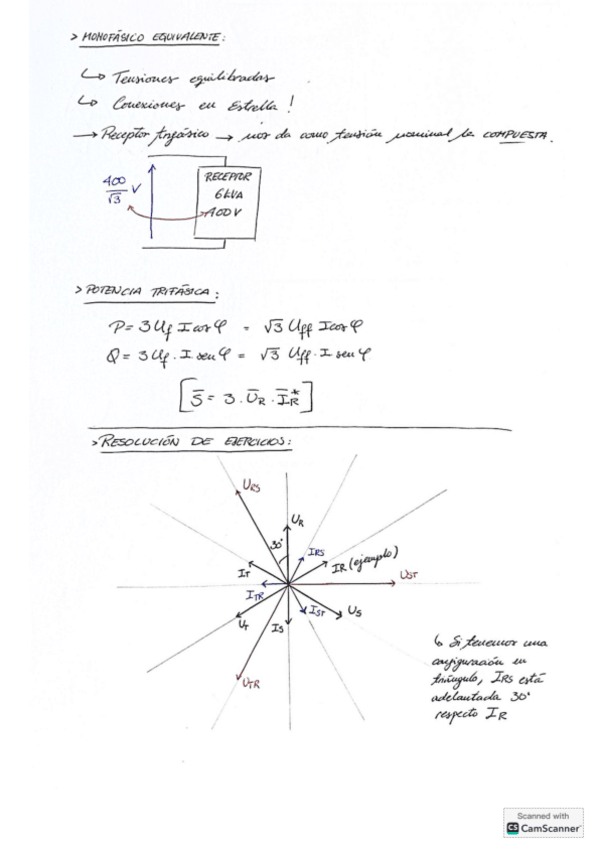 > MONOFÁSICO EQUIVALENTE:
↳ Tensiones equilibradas
↳ Conexiones en Estrella !
→ Receptor trifásico → nos da como tensión nominal la COMPUESTA.
400/√3 V
RECEPTOR
6 kVA
400 V
> POTENCIA TRIFÁSICA:
P = 3 Uf I cos φ = √3 Uff I cos φ
Q = 3 Uf · I sen φ = √3 Uff · I sen φ
[S̄ = 3 · ŪR · ĪR*]
> RESOLUCIÓN DE EJERCICIOS:
URS
UR
30°
IRS
IT
IR (ejemplo)
UST
ITR
IST
US
UT
IS
UTR
↳ Si tenemos una
configuración en
triángulo, IRS está
adelantada 30°
respecto IR
Scanned with
CS CamScanner